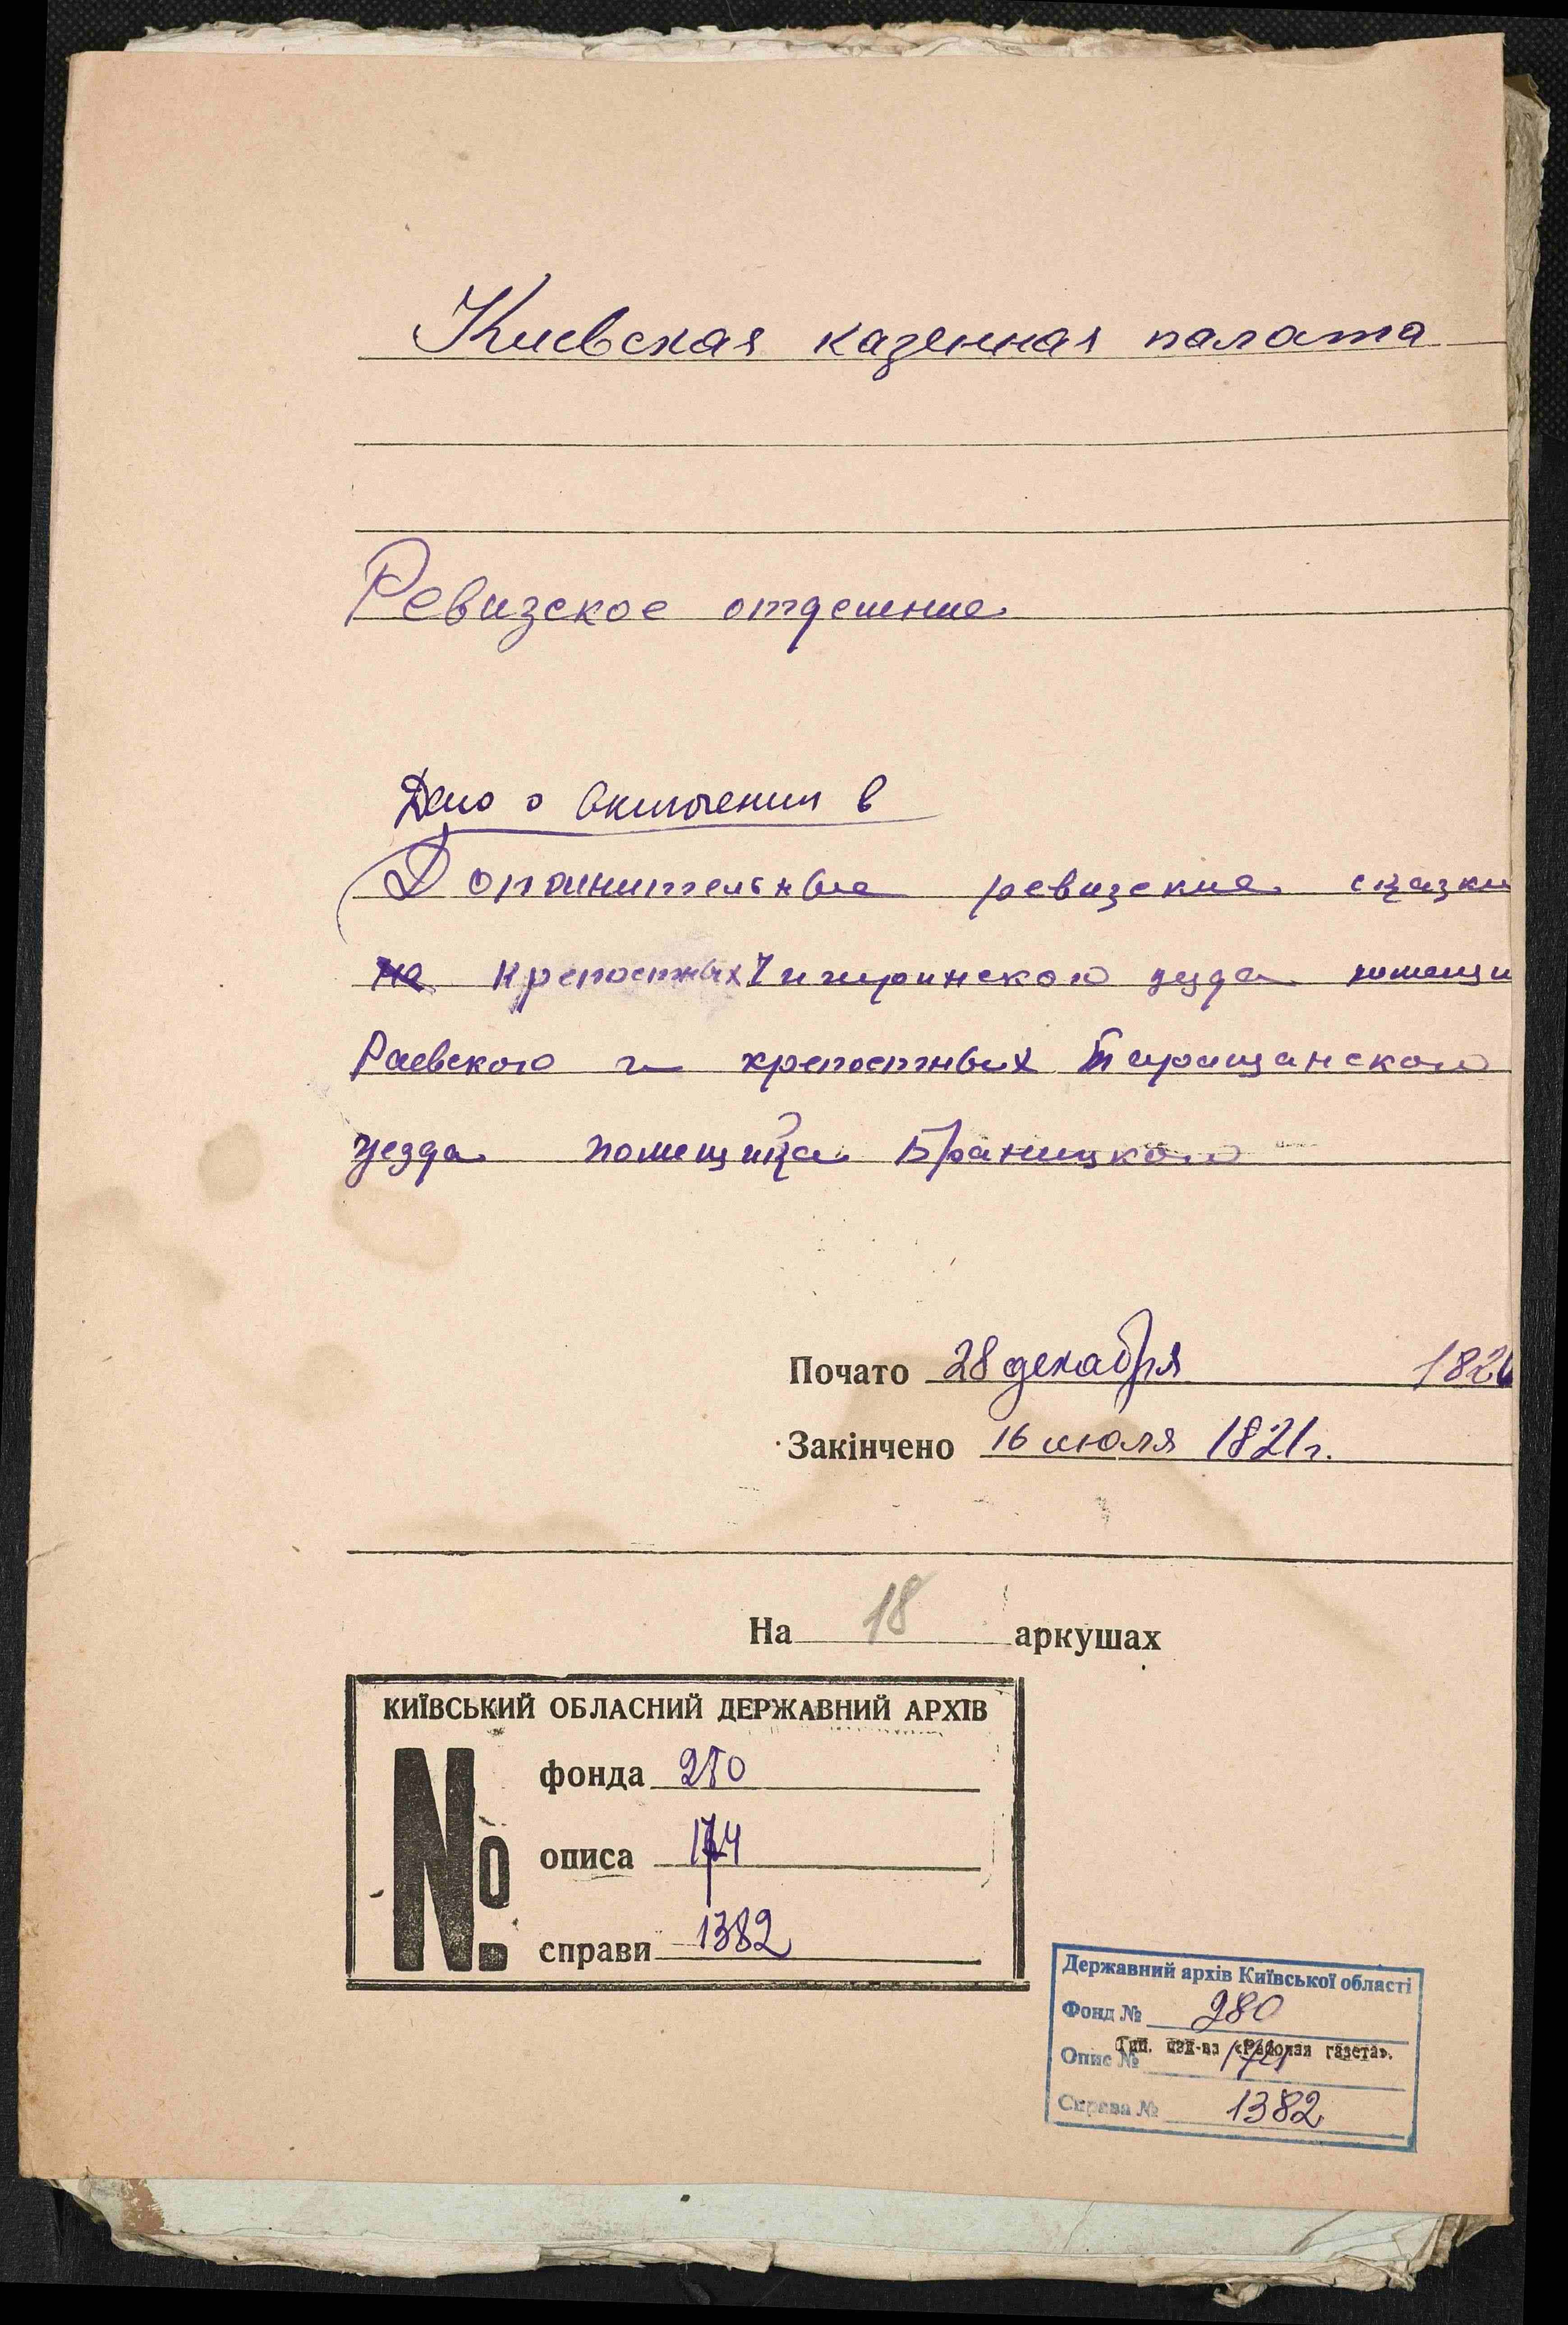 Киевская казенная палата
Ревизское отделение
Дело о включении в
Дополнительные ревизские сказки
на крепостных Чигиринского уезда помещи
Раевского и крепостных Таращанского
уезда помещика Браницкого
Почато 28 декабря 1820
Закінчено 16 июля 1821 г.
На 18 аркушах
КИЇВСЬКИЙ ОБЛАСНИЙ ДЕРЖАВНИЙ АРХІВ
№
фонда 280
описа 174
справи 1382
Державний архів Київської області
Фонд № 280
Тип. изд-ва «Рабочая газета».
Опис № 174
Справа № 1382